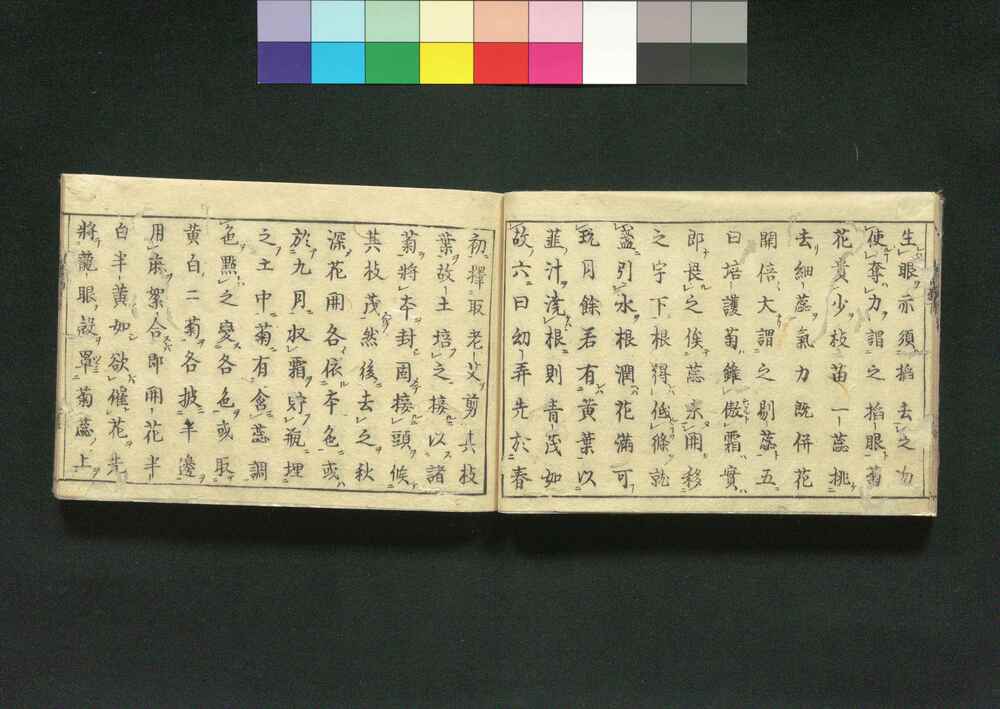 生眼亦須掐去之勿
使奪力謂之掐眼菊
花貴少枝苗一蕊挑
去細蕊氣力既併花
開倍大謂之剔蕊五
曰培護菊雖傲霜實
即畏之俟蕊未開移
之字下根得低條就
盞引水根潤花滿可
玩月餘若有黃葉以
韮汁澆根則青茂如
故六曰幻弄先於春
初擇取老艾剪其枝
葉故土培之接以諸
菊將本封固接頭候
其枝茂然後去之秋
深花開各依本色或
於九月收霜貯瓶埋
之土中菊有含蕊調
色點之變各色或取
黄白二菊各披半邊
用麻絮合即開花半
白半黄如欲催花先
將龍眼殼罩菊蕊上